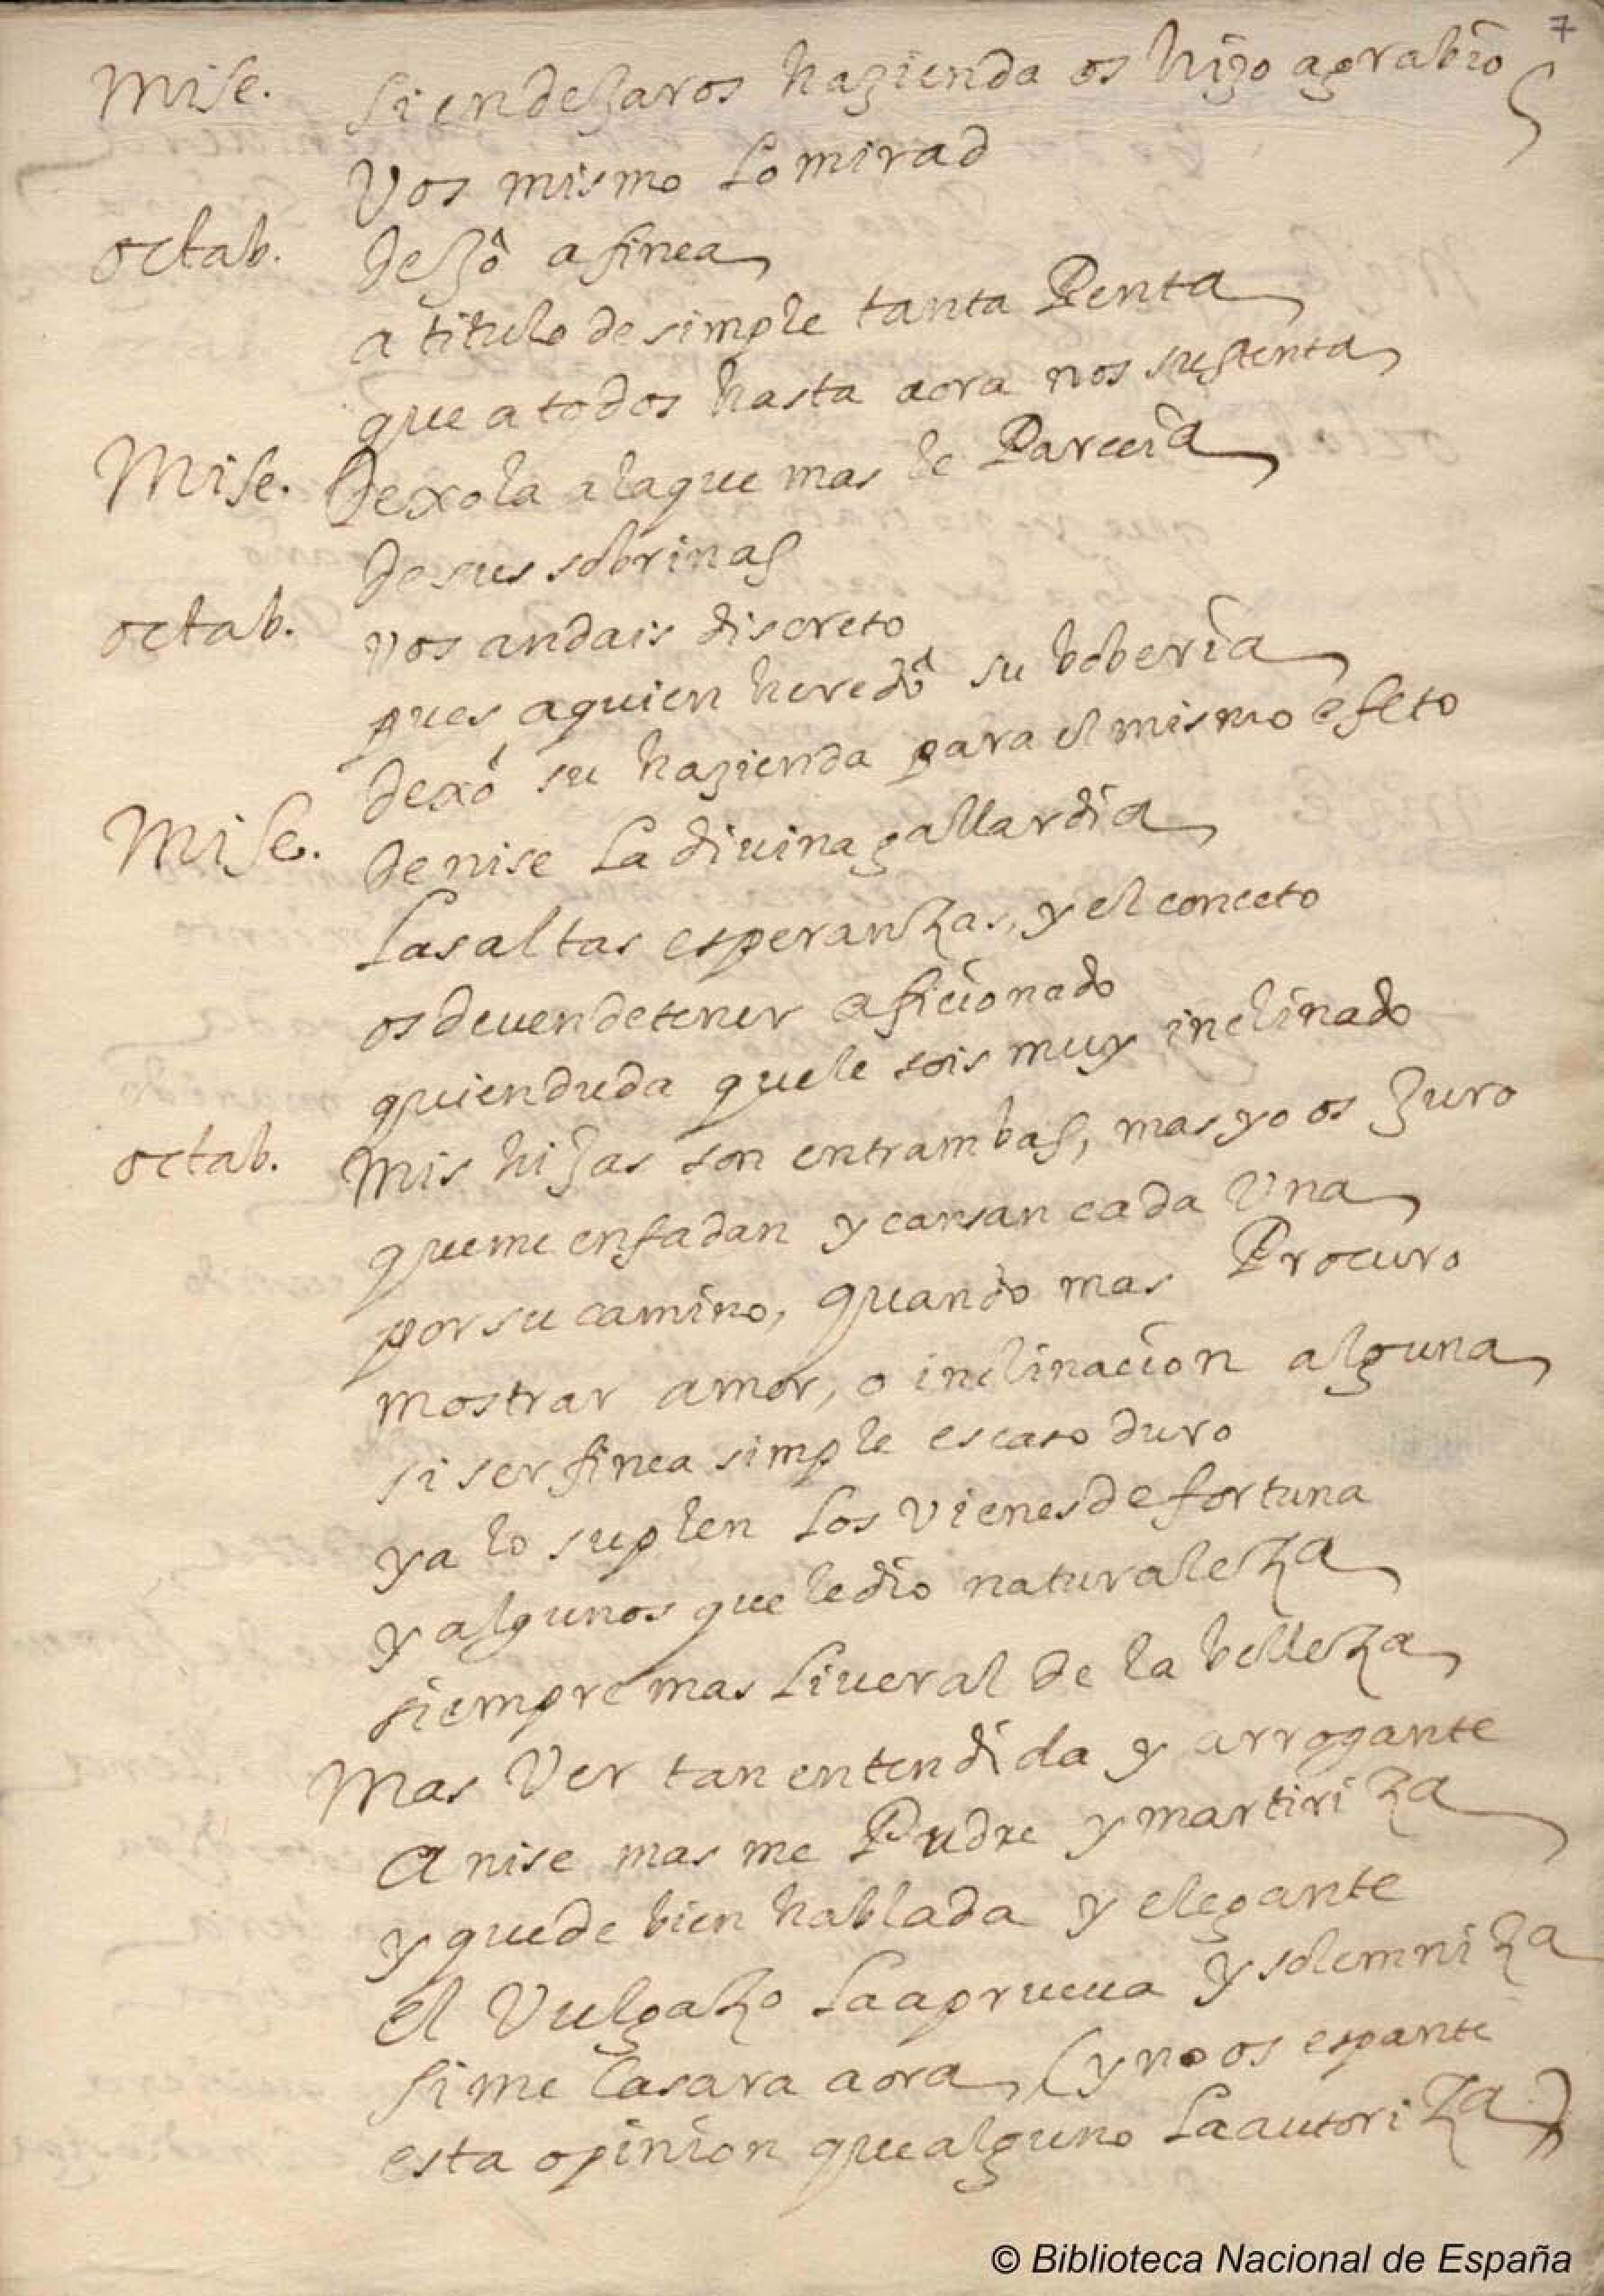 7
Mise. Si en dejaros hazienda os hizo agrabio
Vos mismo lo mirad
octab. dejó a finea
a titulo de simple tanta Renta
que a todos hasta aora nos sustenta
Mise. Dexola a la que mas le Parecia
de sus sobrinas
octab. vos andais discreto
pues a quien heredó su boberia
dexó su hazienda para el mismo efeto
Mise. de nise la diuina gallardia
las altas esperanzas, y el conceto
os deuen de tener aficionado
quien duda que le sois muy inclinado
octab. Mis hijas son entrambas, mas yo os juro
que me enfadan y cansan cada Una
por su camino, quando mas Procuro
mostrar amor, o inclinacion alguna
si ser finea simple es caso duro
ya lo suplen los vienes de fortuna
y algunos que le dio naturaleza
siempre mas liueral de la belleza
Mas Ver tan entendida y arrogante
A nise mas me Pudre y martiriza
y que de bien hablada y elegante
el Vulgazo la aprueua y solemniza
si me casara aora, (y no os espante
esta opinion que alguno la autoriza)
© Biblioteca Nacional de España